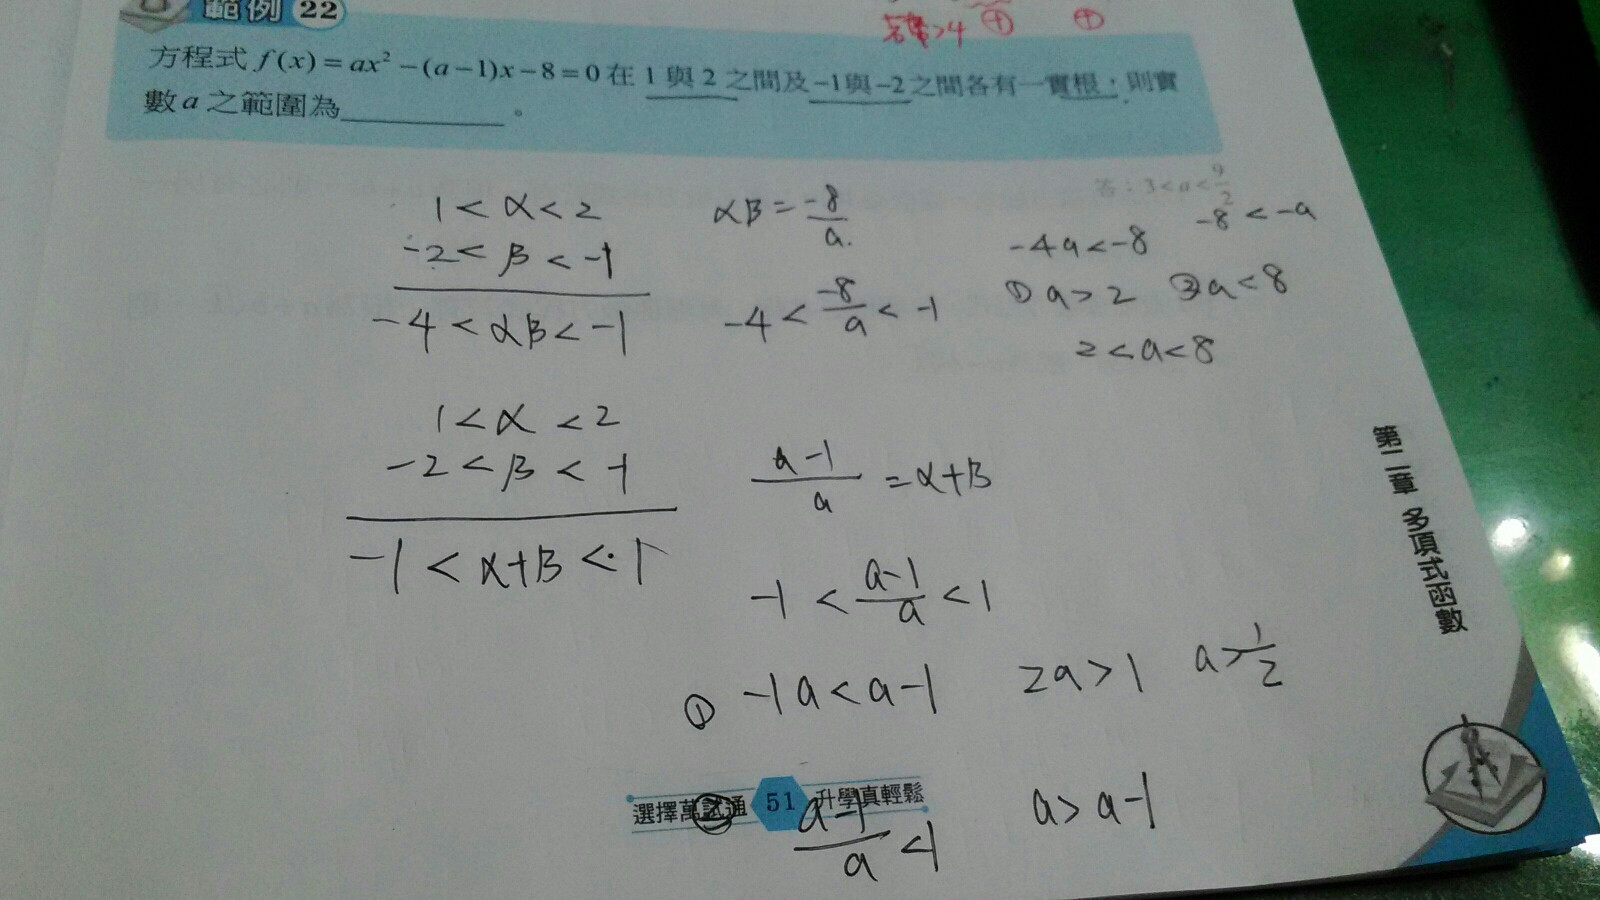 範例 22
答案>4 ⊕ ⊕
方程式 f(x)=ax²-(a-1)x-8=0 在 1 與 2 之間及 -1與-2 之間各有一實根，則實
數 a 之範圍為__________。
答：3<a<9/2
1<α<2
-2<β<-1
-4<αβ<-1
αβ=-8/a.
-4<-8/a<-1
-4a<-8
-8<-a
① a>2 ② a<8
2<a<8
1<α<2
-2<β<-1
-1<α+β<1
a-1/a=α+β
-1<a-1/a<1
① -1a<a-1 2a>1 a>1/2
② a-1/a<1 a>a-1
選擇萬試通 51 升學真輕鬆
第二章 多項式函數